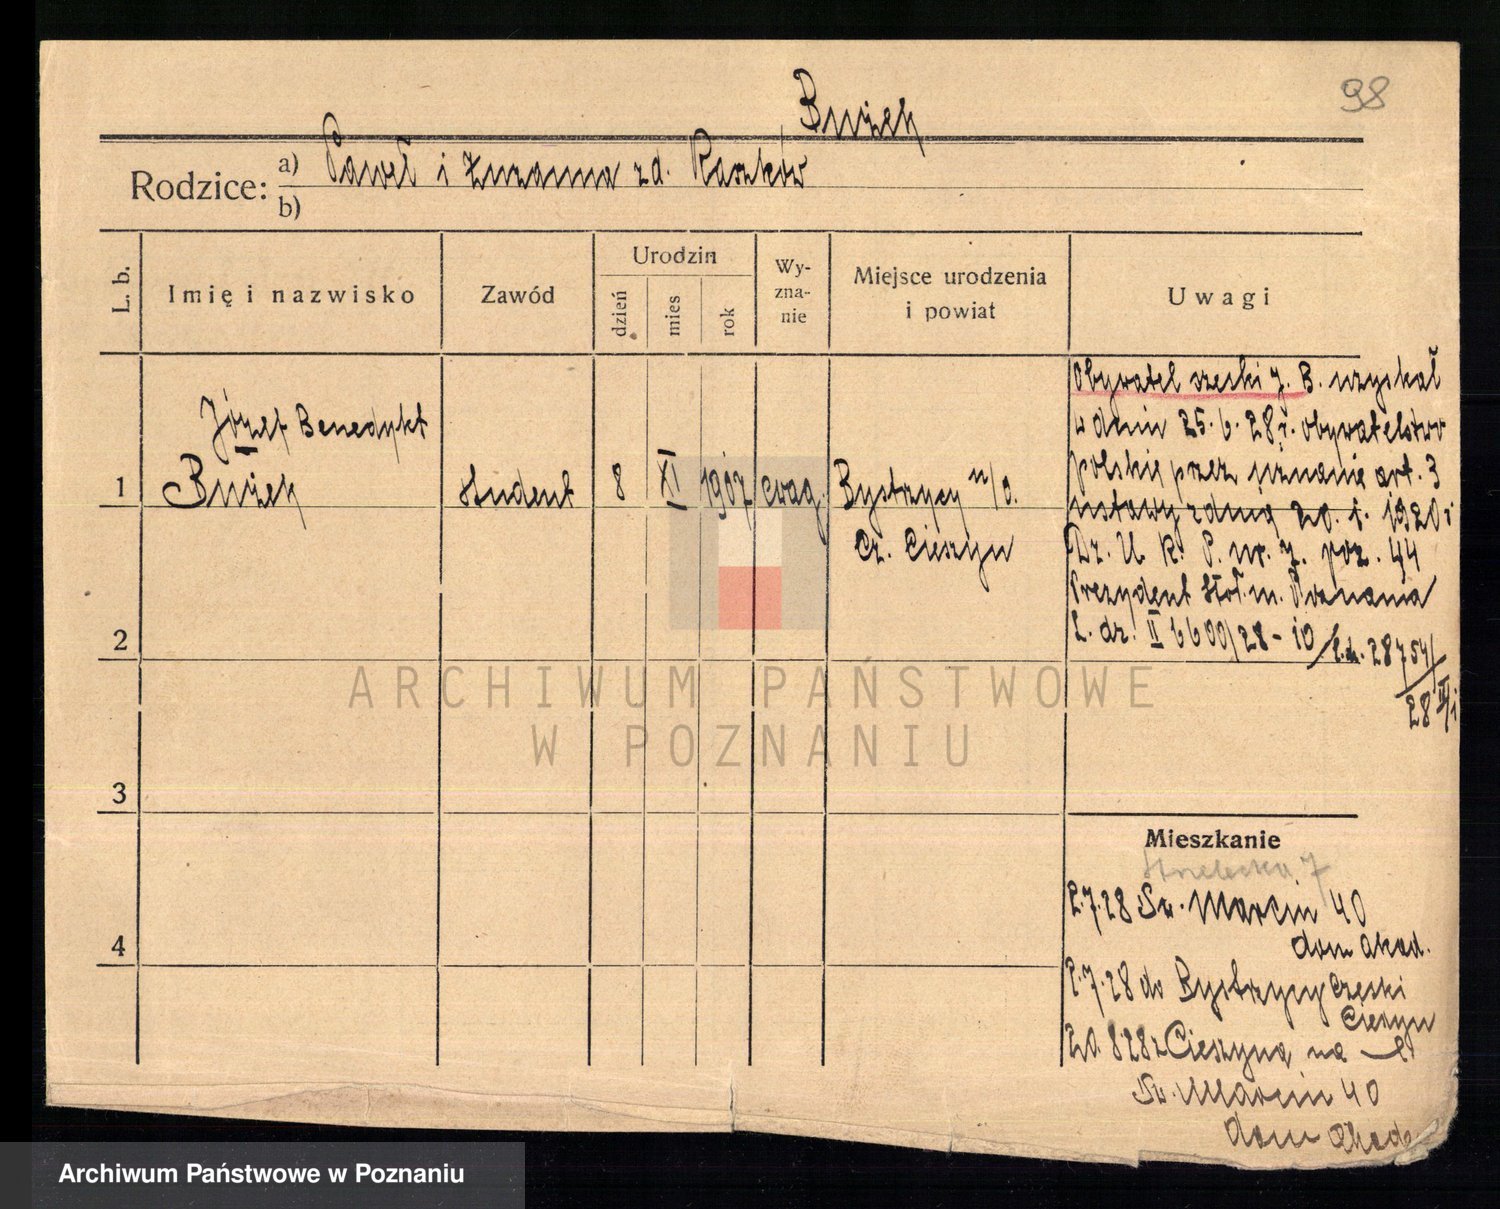 98
Bużek
Rodzice: a) Paweł i Zuzanna zd. Raszków
b)
L. b. Imię i nazwisko Zawód Urodzin dzień mies rok Wy-zna-nie Miejsce urodzenia i powiat Uwagi
Józef Benedykt
1 Bużek student 8 XI 1907 ewag. Bystrzycy n/O.
Cz. Cieszyn
Obywatel czeski J. B. uzyskał
w dniu 25.6.28 r. obywatelstwo
polskie przez uznanie art. 3
ustawy z dnia 20. 1. 1920 r
Dz. U. R. P. nr. 7. poz. 44
Prezydent stoł. m. Poznania
L. dz. II 6600/28 - 10 / L.dz. 28754/
28
2
3
4
Mieszkanie
Strzelecka 7
2.7.28 Św. Marcin 40
dom akad.
2.7.28 do Bystrzycy Czeski
Cieszyn
20.8.28 z Cieszyna na
Św. Marcin 40
dom akad.
ARCHIWUM PAŃSTWOWE
W POZNANIU
Archiwum Państwowe w Poznaniu